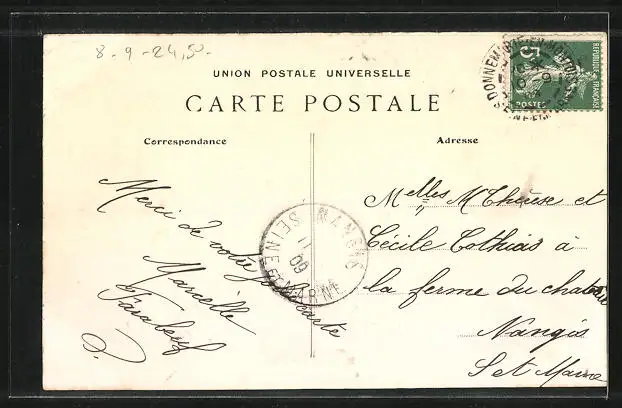 8-9-24,50
UNION POSTALE UNIVERSELLE
CARTE POSTALE
Correspondance
Adresse
5
POSTES
REPUBLIQUE FRANÇAISE
Merci de votre jolie carte
Marcelle
Farabeuf
NANGIS
11
09
SEINE ET MARNE
Melles M Thérèse et
Cécile Cothias à
la ferme du chateau
Nangis
S et Marne